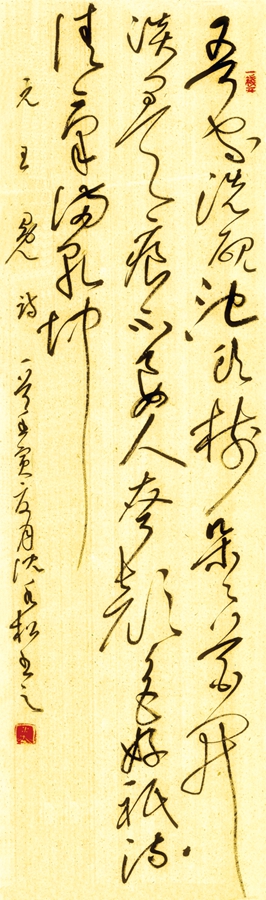 吾家洗硯池頭樹朵々花開
淡墨痕不要人夸顏色好祇流
清氣滿乾坤
元王冕詩 壬寅夏月沈松書之